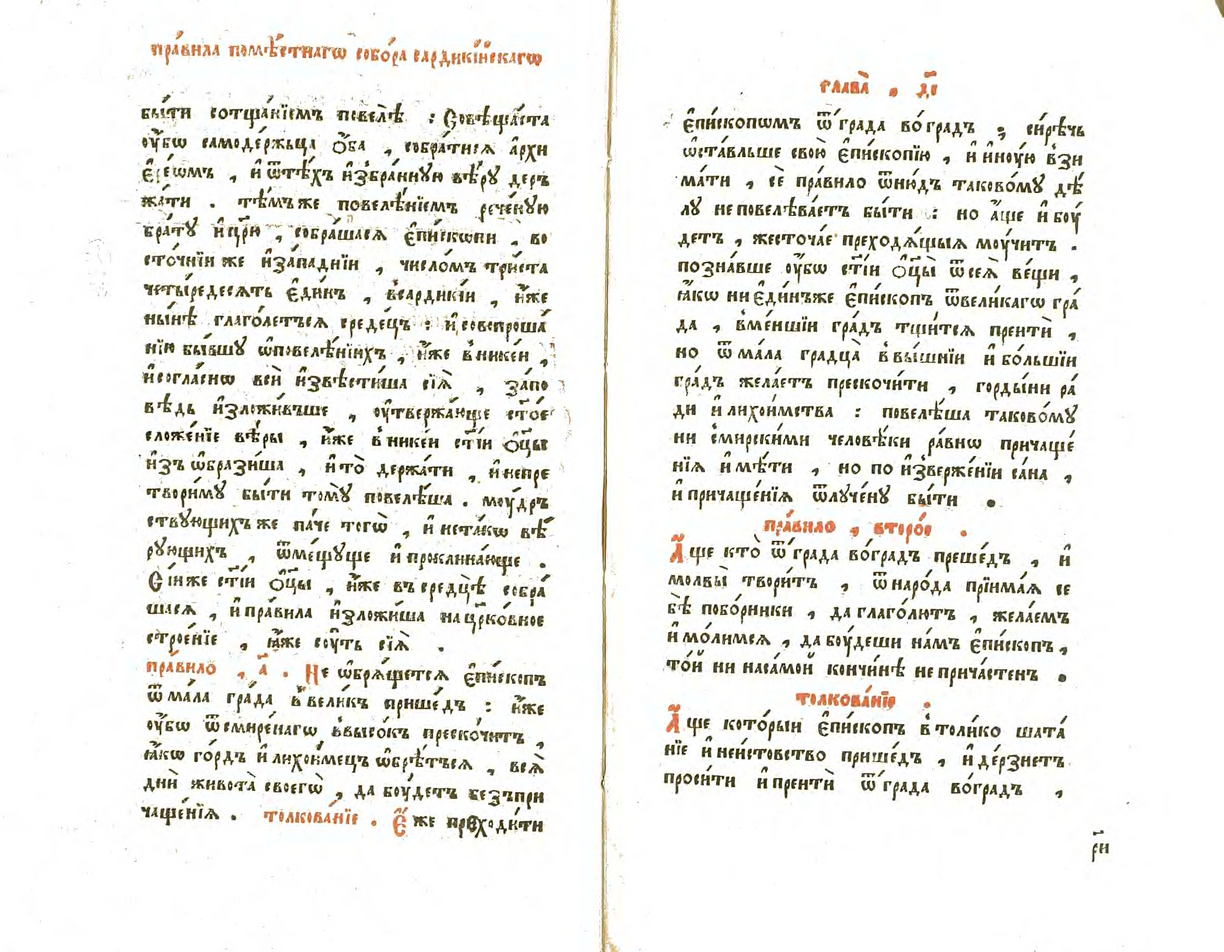 пра́вила помѣ́стнагѡ собо́ра сардикі́йскагѡ
бы́ти сотща́нїемъ повелѣ̀ : Совѣща́ста
оу҆́бѡ самоде́ржьца ѻ҆́ба , собра́тисѧ а҆рхи
є҆рє́ѡмъ , и҆ ѿтѣ́хъ и҆збра́ннꙋю вѣ́рꙋ держ
жа́ти . тѣ́мъже повелѣ́нїемъ рече́нꙋю
бра́тꙋ и҆ цр҃ю , собра́шасѧ є҆пи́скѡпи , во
сто́чнїи же и҆за́паднїи , число́мъ три́ста
четы́редесѧть є҆ди́нъ , всардикі́и , и҆́же
ны́нѣ глаго́летьсѧ сре́децъ : и҆ совспроша́
нїю бы́вшꙋ ѡ҆повелѣ́нїихъ , и҆́же вники́и ,
и҆согла́снѡ всѝ и҆звѣсти́ша сїѧ̀ , за́по
вѣдь и҆зложи́въше , оу҆твержа́юще ст҃о́е
сложе́нїе вѣ́ры , и҆́же вники́и ст҃і́и ѻ҆ц҃ы̀
и҆зъ ѡ҆брази́ша , и҆то̀ держа́ти , и҆непре
твори́мꙋ бы́ти томꙋ̀ повелѣ́ша . моу́дръ
ствꙋющихъ же па́че тогѡ̀ , и҆ нета́кѡ вѣ́
рꙋющихъ , ѿме́щꙋще и҆ проклина́юще .
Сі́иже ст҃і́и ѻ҆ц҃ы̀ , и҆́же въ сре́дцѣ собра́
шасѧ , и҆ пра́вила и҆зложи́ша на цр҃ко́вное
строе́нїе , ꙗ҆́же соу́ть сїѧ̀ .
пра́вило , а҃ . Не ѡ҆брѧ́щетсѧ є҆пи́скопъ
ѿ ма́ла гра́да в вели́къ прише́дъ : и҆́же
оу҆́бѡ ѿ смире́нагѡ ввысо́къ преско́читъ ,
ꙗ҆́кѡ го́рдъ и҆ лихои́мецъ ѡ҆брѣ́тъсѧ , всѧ̀
дни̑ живота̀ своегѡ̀ , да боу́детъ безъпри
чаще́нїѧ . толкова́нїе . Є҆́же преходи́ти
глава̀ . д҃і
є҆пи́скопѡмъ ѿ гра́да во́градъ ; си́рѣчь
ѡ҆ста́вльше свою̀ є҆пископі́ю , и҆ и҆но́ую взи
ма́ти , сѐ пра́вило ѿню́дъ таково́мꙋ дѣ́
лꙋ не повелѣва́етъ бы́ти : но а҆́ще и҆ боу́
детъ , жесточа́е преходѧ́щыѧ моу́читъ .
позна́вше оу҆́бѡ ст҃і́и ѻ҆ц҃ы̀ ѿ сеѧ̀ ве́щи ,
ꙗ҆́кѡ ни є҆ди́нъже є҆пи́скопъ ѿвели́кагѡ гра́
да , вме́ншїи гра́дъ тщи́тсѧ преитѝ ,
но ѿ ма́ла градца̀ в вы́шнїи и҆ бо́льшїи
гра́дъ жела́етъ прескочи́ти , горды́ни ра́
ди и҆ лихои́мства : повелѣ́ша таково́мꙋ
ни смирски́ми человѣ́ки ра́внѡ причаще́
нїѧ и҆мѣ́ти , но по и҆зверже́нїи са́на ,
и҆ причаще́нїѧ ѿлꙋче́нꙋ бы́ти .
пра́вило , второ́е .
А҆́ще кто̀ ѿ гра́да во́градъ преше́дъ , и҆
молвы̀ твори́тъ , ѿ наро́да прїима́ѧ се
бѣ̀ побо́рники , да глаго́лютъ , жела́емъ
и҆ мо́лимсѧ , да боу́деши на́мъ є҆пи́скопъ ,
то́й ни наса́мой кончи́нѣ не прича́стенъ .
толкова́нїе .
А҆́ще кото́рыи є҆пи́скопъ в толи́ко шата́
нїе и҆ неи́стовство прише́дъ , и҆ де́рзнетъ
проси́ти и҆ преитѝ ѿ гра́да во́градъ ,
р҃и